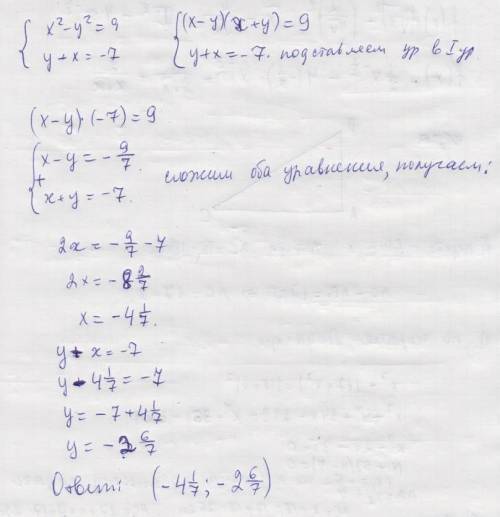 { x² − y² = 9   { (x−y)(x+y) = 9
{ y + x = −7   { y+x = −7. подставляем ур в I ур.
(x−y)·(−7) = 9
{ x−y = −9/7.
+
{ x+y = −7. сложим оба уравнения, получаем:
2x = −9/7 − 7
2x = −8 2/7
x = −4 1/7.
y + x = −7
y − 4 1/7 = −7
y = −7 + 4 1/7
y = −2 6/7
Ответ: (−4 1/7; −2 6/7)